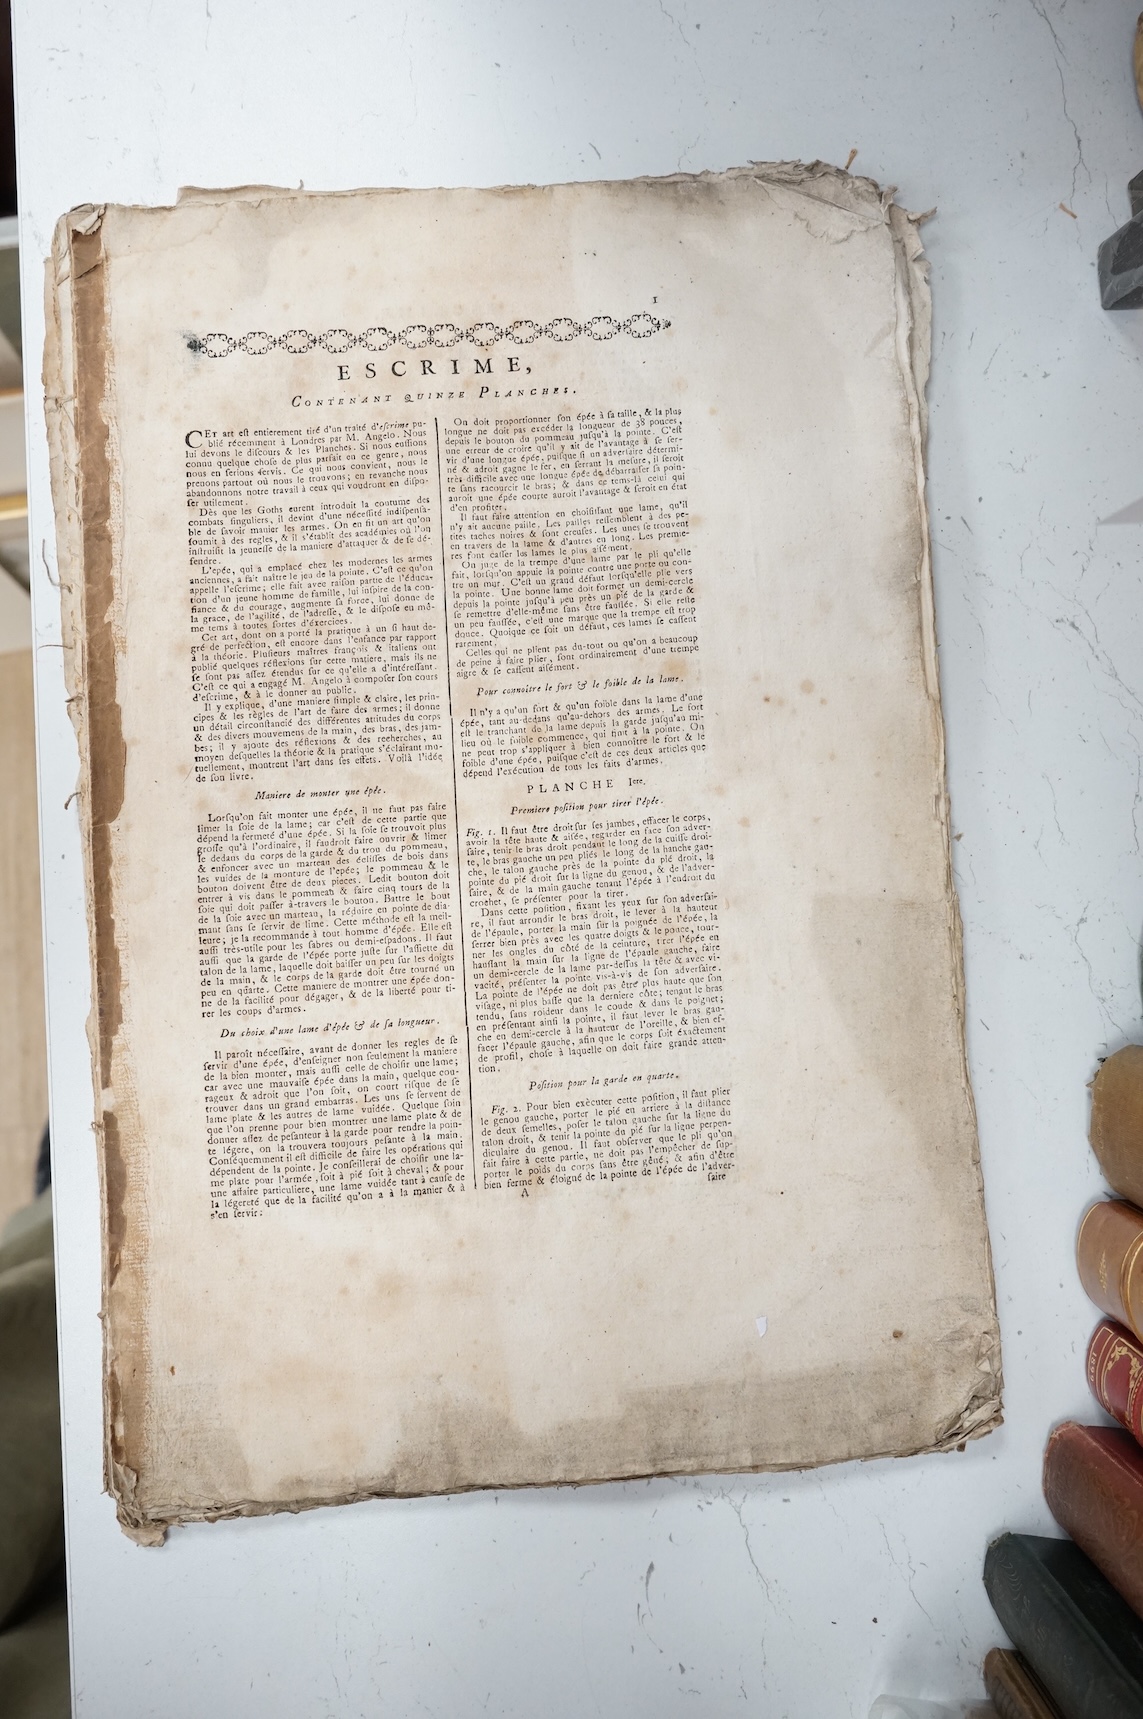 1
ESCRIME,
CONTENANT QUINZE PLANCHES.
CET art est entierement tiré d'un traité d'escrime pu-
blié récemment à Londres par M. Angelo. Nous
lui devons le discours & les Planches. Si nous eussions
connu quelque chose de plus parfait en ce genre, nous
nous en serions servis. Ce qui nous convient, nous le
prenons partout où nous le trouvons; en revanche nous
abandonnons notre travail à ceux qui voudront en dispo-
ser utilement.
Dès que les Goths eurent introduit la coutume des
combats singuliers, il devint d'une nécessité indispensa-
ble de savoir manier les armes. On en fit un art qu'on
soumit à des regles, & il s'établit des académies où l'on
instruisit la jeunesse de la maniere d'attaquer & de se dé-
fendre.
L'epée, qui a emplacé chez les modernes les armes
anciennes, a fait naître le jeu de la pointe. C'est ce qu'on
appelle l'escrime; elle fait avec raison partie de l'éduca-
tion d'un jeune homme de famille, lui inspire de la con-
fiance & du courage, augmente sa force, lui donne de
la grace, de l'agilité, de l'adresse, & le dispose en mê-
me tems à toutes sortes d'exercices.
Cet art, dont on a porté la pratique à un si haut de-
gré de perfection, est encore dans l'enfance par rapport
à la théorie. Plusieurs maîtres françois & italiens ont
publié quelques réflexions sur cette matiere, mais ils ne
se sont pas assez étendus sur ce qu'elle a d'intéressant.
C'est ce qui a engagé M. Angelo à composer son cours
d'escrime, & à le donner au public.
Il y explique, d'une maniere simple & claire, les prin-
cipes & les règles de l'art de faire des armes; il donne
un détail circonstancié des différentes attitudes du corps
& des divers mouvemens de la main, des bras, des jam-
bes; il y ajoute des réflexions & des recherches, au
moyen desquelles la théorie & la pratique s'éclairant mu-
tuellement, montrent l'art dans ses effets. Voilà l'idée
de son livre.
Maniere de monter une épée.
Lorsqu'on fait monter une épée, il ne faut pas faire
limer la soie de la lame; car c'est de cette partie que
dépend la fermeté d'une épée. Si la soie se trouvoit plus
grosse qu'à l'ordinaire, il faudroit faire ouvrir & limer
le dedans du corps de la garde & du trou du pommeau,
& enfoncer avec un marteau des éclisses de bois dans
les vuides de la monture de l'epée; le pommeau & le
bouton doivent être de deux pieces. Ledit bouton doit
entrer à vis dans le pommeau & faire cinq tours de la
soie qui doit passer à-travers le bouton. Battre le bout
de la soie avec un marteau, la réduire en pointe de dia-
mant sans se servir de lime. Cette méthode est la meil-
leure; je la recommande à tout homme d'épée. Elle est
aussi très-utile pour les sabres ou demi-espadons. Il faut
aussi que la garde de l'épée porte juste sur l'assiette du
talon de la lame, laquelle doit baisser un peu sur les doigts
de la main, & le corps de la garde doit être tourné un
peu en quarte. Cette maniere de montrer une épée don-
ne de la facilité pour dégager, & de la liberté pour ti-
rer les coups d'armes.
Du choix d'une lame d'épée & de sa longueur.
Il paroît nécessaire, avant de donner les regles de se
servir d'une épée, d'enseigner non seulement la maniere
de la bien monter, mais aussi celle de choisir une lame;
car avec une mauvaise épée dans la main, quelque cou-
rageux & adroit que l'on soit, on court risque de se
trouver dans un grand embarras. Les uns se servent de
lame plate & les autres de lame vuidée. Quelque soin
que l'on prenne pour bien montrer une lame plate & de
donner assez de pesanteur à la garde pour rendre la poin-
te légere, on la trouvera toujours pesante à la main.
Conséquemment il est difficile de faire les opérations qui
dépendent de la pointe. Je conseillerai de choisir une la-
me plate pour l'armée, soit à pié soit à cheval; & pour
une affaire particuliere, une lame vuidée tant à cause de
la légereté que de la facilité qu'on a à la manier & à
s'en servir:
On doit proportionner son épée à sa taille, & la plus
longue ne doit pas excéder la longueur de 38 pouces,
depuis le bouton du pommeau jusqu'à la pointe. C'est
une erreur de croire qu'il y ait de l'avantage à se ser-
vir d'une longue épée, puisque si un adversaire détermi-
né & adroit gagne le fer, en serrant la mesure, il seroit
très difficile avec une longue épée de débarraser sa poin-
te sans racourcir le bras; & dans ce tems-là celui qui
auroit une épée courte auroit l'avantage & seroit en état
d'en profiter.
Il faut faire attention en choisissant une lame, qu'il
n'y ait aucune paille. Les pailles ressemblent à des pe-
tites taches noires & sont creuses. Les unes se trouvent
en travers de la lame & d'autres en long. Les premie-
res font casser les lames le plus aisément.
On juge de la trempe d'une lame par le pli qu'elle
fait, lorsqu'on appuie la pointe contre une porte ou con-
tre un mur. C'est un grand défaut lorsqu'elle plie vers
la pointe. Une bonne lame doit former un demi-cercle
depuis la pointe jusqu'à peu près un pié de la garde &
se remettre d'elle-même sans être faussée. Si elle reste
un peu faussée, c'est une marque que la trempe est trop
douce. Quoique ce soit un défaut, ces lames se cassent
rarement.
Celles qui ne plient pas du-tout ou qu'on a beaucoup
de peine à faire plier, sont ordinairement d'une trempe
aigre & se cassent aisément.
Pour connoître le fort & le foible de la lame.
Il n'y a qu'un fort & qu'un foible dans la lame d'une
épée, tant au-dedans qu'au-dehors des armes. Le fort
est le tranchant de la lame depuis la garde jusqu'au mi-
lieu où le foible commence, qui finit à la pointe. On
ne peut trop s'appliquer à bien connoître le fort & le
foible d'une épée, puisque c'est de ces deux articles que
dépend l'exécution de tous les faits d'armes.
PLANCHE Iere.
Premiere position pour tirer l'épée.
Fig. 1. Il faut être droit sur ses jambes, effacer le corps,
avoir la tête haute & aisée, regarder en face son adver-
saire, tenir le bras droit pendant le long de la cuisse droi-
te, le bras gauche un peu pliés le long de la hanche gau-
che, le talon gauche près de la pointe du pié droit, la
pointe du pié droit sur la ligne du genou, & de l'adver-
saire, & de la main gauche tenant l'épée à l'endroit du
crochet, se présenter pour la tirer.
Dans cette position, fixant les yeux sur son adversai-
re, il faut arrondir le bras droit, le lever à la hauteur
de l'épaule, porter la main sur la poignée de l'épée, la
serrer bien près avec les quatre doigts & le pouce, tour-
ner les ongles du côté de la ceinture, tirer l'épée en
haussant la main sur la ligne de l'épaule gauche, faire
un demi-cercle de la lame par-dessus la tête & avec vi-
vacité, présenter la pointe vis-à-vis de son adversaire.
La pointe de l'épée ne doit pas être plus haute que son
visage, ni plus basse que la derniere côte; tenant le bras
tendu, sans roideur dans le coude & dans le poignet;
en présentant ainsi la pointe, il faut lever le bras gau-
che en demi-cercle à la hauteur de l'oreille, & bien ef-
facer l'épaule gauche, afin que le corps soit éxactement
de profil, chose à laquelle on doit faire grande atten-
tion.
Position pour la garde en quarte.
Fig. 2. Pour bien exécuter cette position, il faut plier
le genou gauche, porter le pié en arriere à la distance
de deux semelles, poser le talon gauche sur la ligne du
talon droit, & tenir la pointe du pié sur la ligne perpen-
diculaire du genou. Il faut observer que le pli qu'on
fait faire à cette partie, ne doit pas l'empêcher de sup-
porter le poids du corps sans être gêné; & afin d'être
bien ferme & éloigné de la pointe de l'épée de l'adver-
A
saire